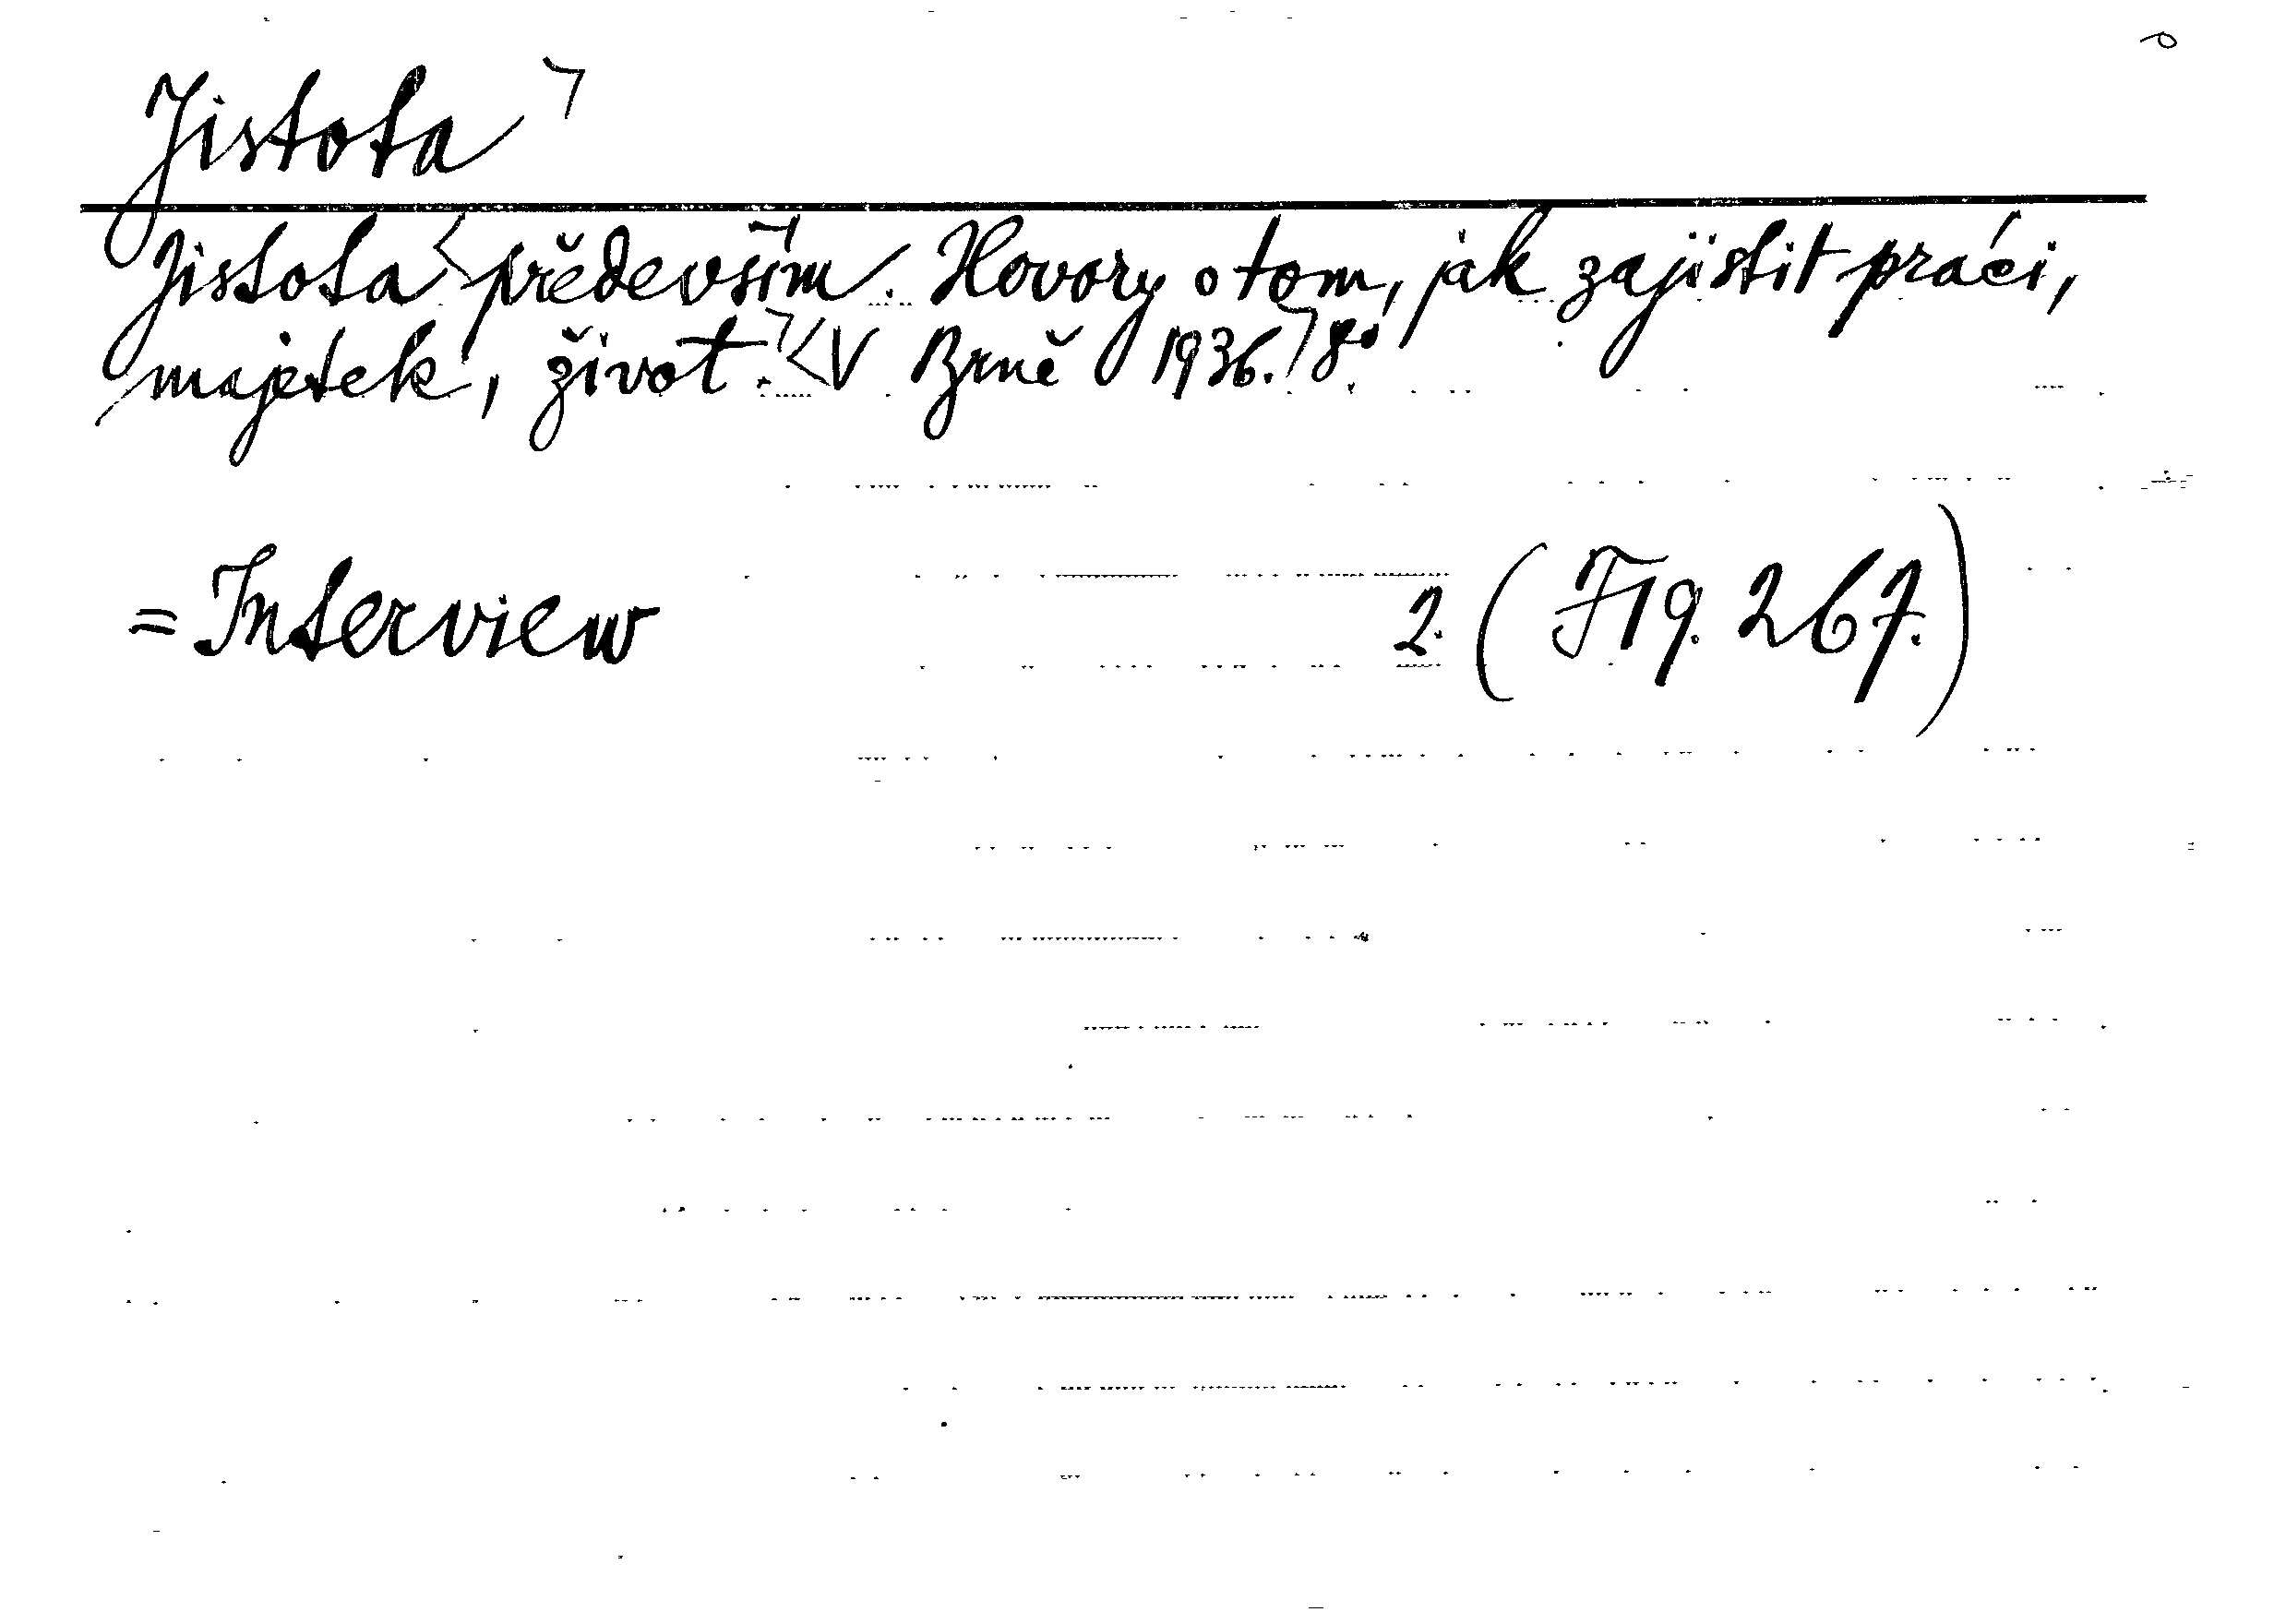 Jistota
Jistota především. Hovory o tom, jak zajistit práci,
majetek, život. V Brně 1936. 8°
= Interview 2. (F19. 267.)